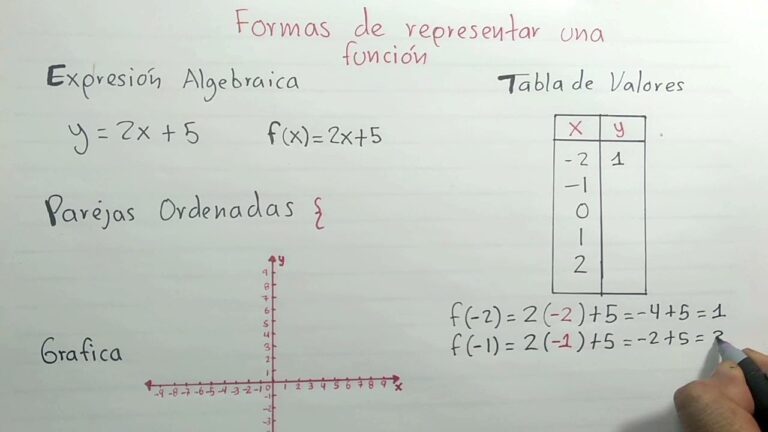 Formas de representar una
función
Expresión Algebraica
y = 2x + 5
f(x) = 2x+5
Parejas Ordenadas {
Grafica
y
9
8
7
6
5
4
3
2
1
-9 -8 -7 -6 -5 -4 -3 -2 -1 0 1 2 3 4 5 6 7 8 9 x
-1
-2
-3
Tabla de Valores
x y
-2 1
-1
0
1
2
f(-2) = 2(-2)+5 = -4+5 = 1
f(-1) = 2(-1)+5 = -2+5 =